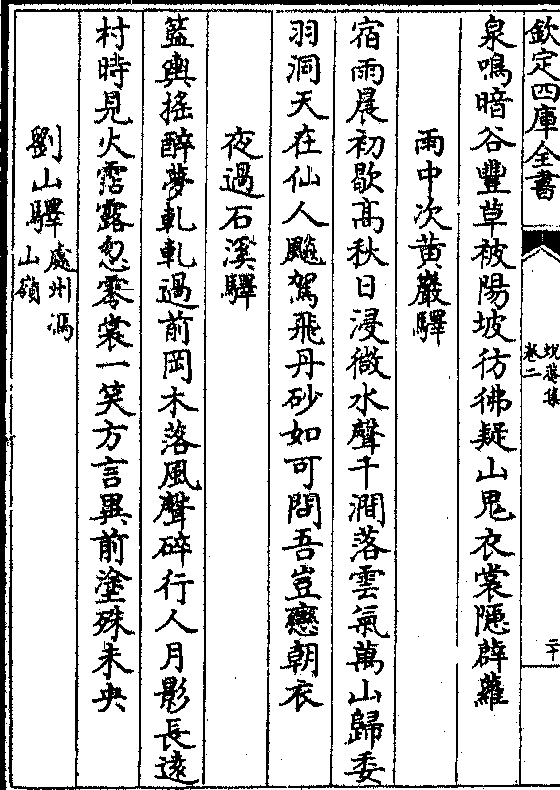 欽定四庫全書
蛻菴集
卷二
二十
泉鳴暗谷豐草被陽坡彷彿疑山鬼衣裳隱辟蘿
雨中次黃巖驛
宿雨晨初歇髙秋日浸微水聲千澗落雲氣萬山歸委
羽洞天在仙人飈駕飛丹砂如可問吾豈戀朝衣
夜過石溪驛
籃輿搖醉夢軋軋過前岡木落風聲碎行人月影長遠
村時見火霑露忽零裳一笑方言異前塗殊未央
劉山驛處州馮
山嶺